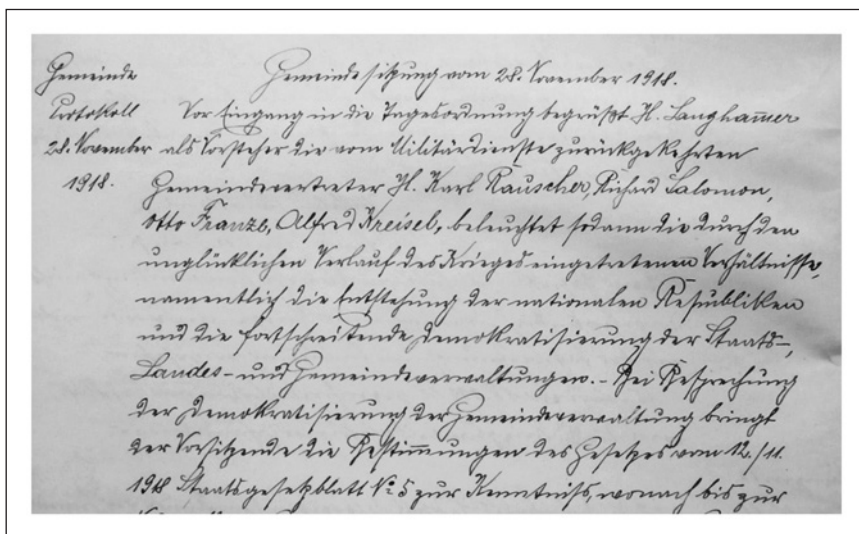 Gemeinde
Protokoll
28. November
1918.
Gemeindesitzung vom 28. November 1918.
Vor Eingang in die Tagesordnung begrüßt H. Langham̅er
als Vorsteher die vom Militärdienste zurückgekehrten
Gemeindevertreter H. Karl Rauscher, Richard Salomon,
Otto Franzl, Alfred Kreisel, beleuchtet sodann die durch den
unglücklichen Verlauf des Krieges eingetretenen Verhältnisse,
namentlich die Entstehung der nationalen Republiken
und die fortschreitende Demokratisierung der Staats-,
Landes- und Gemeindeverwaltungen. – Bei Besprechung
der Demokratisierung der Gemeindeverwaltung bringt
der Vorsitzende die Bestim̅ungen des Gesetzes vom 12./11.
1918 Staatsgesetzblatt № 5 zur Kenntniss, wonach bis zur